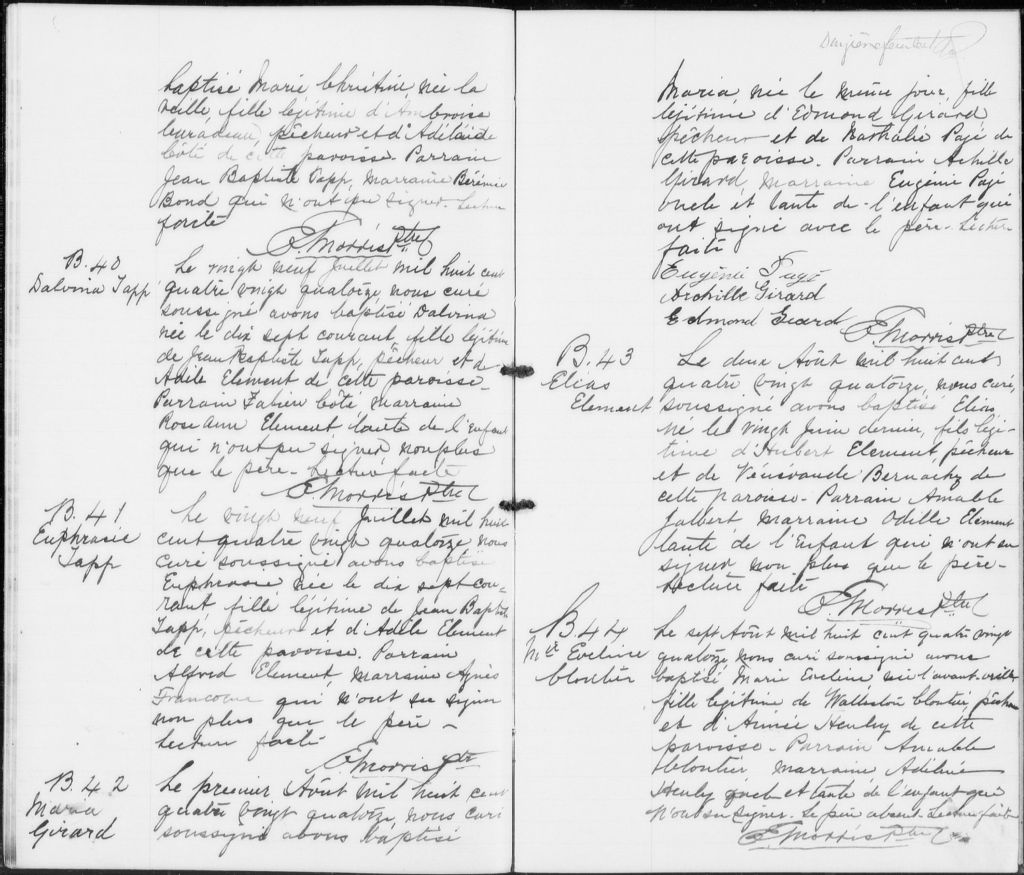 baptisé Marie Christine née la
veille, fille légitime d'Ambroise
pêcheur et d'Adélaïde
Côté de cette paroisse. Parrain
Jean Baptiste Tapp, Marraine Bérénice
Bond qui n'ont pu signer. Lecture
faite
P. Morris Ptre
B. 40
Dalvina Tapp
Le vingt neuf Juillet mil huit cent
quatre vingt quatorze nous curé
soussigné avons baptisé Dalvina
née le dix sept courant, fille légitime
de Jean Baptiste Tapp, pêcheur et d'
Adèle Element de cette paroisse.
Parrain Fabien Côté, Marraine
Rose Anne Element tante de l'Enfant
qui n'ont pu signer non plus
que le père. Lecture faite
P. Morris Ptre
B. 41
Euphrasie
Tapp
Le vingt neuf Juillet mil huit
cent quatre vingt quatorze nous
curé soussigné avons baptisé
Euphrasie née le dix sept cou-
rant fille légitime de Jean Baptiste
Tapp, pêcheur et d'Adèle Element
de cette paroisse. Parrain
Alfred Element, Marraine Agnès
qui n'ont su signer
non plus que le père -
Lecture faite
P. Morris Ptr
B. 42
Maria
Girard
Le premier Août mil huit cent
quatre vingt quatorze, nous curé
soussigné avons baptisé
Maria, née le même jour fille
légitime d'Edmond Girard,
pêcheur et de Nathalie Pagé de
cette paroisse. Parrain Achille
Girard, Marraine Eugénie Pagé
oncle et tante de l'enfant qui
ont signé avec le père. Lecture
faite
Eugénie Pagé
Archille Girard
Edmond Girard
P. Morris Ptre
B. 43
Elias
Element
Le deux Août mil huit cent
quatre vingt quatorze, nous curé,
soussigné avons baptisé Elias
né le vingt Juin dernier, fils légi-
time d'Hubert Element, pêcheur
et de de
cette paroisse. Parrain Amable
Jalbert, Marraine Odille Element
tante de l'Enfant qui n'ont su
signer non plus que le père -
Lecture faite
P. Morris Ptre
B. 44
Mie Eveline
Cloutier
Le sept Août mil huit cent quatre vingt
quatorze, nous curé soussigné avons
baptisé, Marie Eveline, née l'avant-veille
fille légitime de Cloutier, pêcheur
et d'Aimée Henley de cette
paroisse. Parrain Amable
Cloutier, Marraine Adeline
Henley et tante de l'enfant qui
n'ont su signer. Le père absent. Lecture faite
P. Morris Ptre